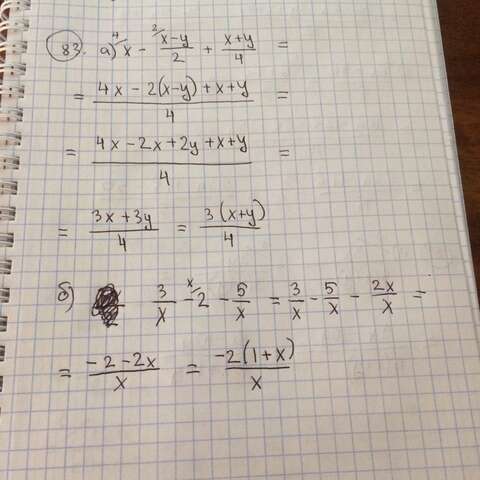 83. а) ⁴/x - ²/(x-y)/2 + (x+y)/4 =
= (4x - 2(x-y) + x+y)/4 =
= (4x - 2x + 2y + x+y)/4 =
= (3x + 3y)/4 = 3(x+y)/4
б) 3/x - ˣ/2 - 5/x = 3/x - 5/x - 2x/x =
= (-2 - 2x)/x = -2(1+x)/x